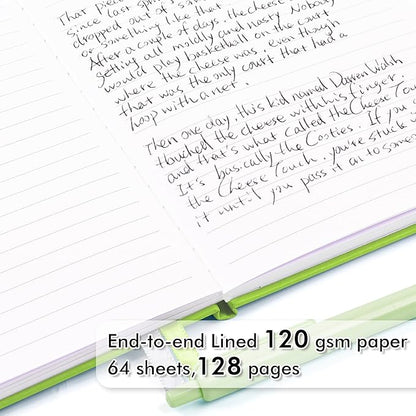 That piece
since last spr
dropped out of s
or something like that
After a couple of days, the cheese
getting all moldly and nasty. Nobody
would play basketball on the court
where the cheese was, even though
that was the only court that had a
loop with a net.
Then one day, this kid named Darren Walsh
touched the cheese with his finger.
and that's what called the Cheese Touc
It's basically the Cooties. If you
the Cheese Touch, you're stuck
it until you pass it on to some
End-to-end Lined 120 gsm paper
64 sheets, 128 pages